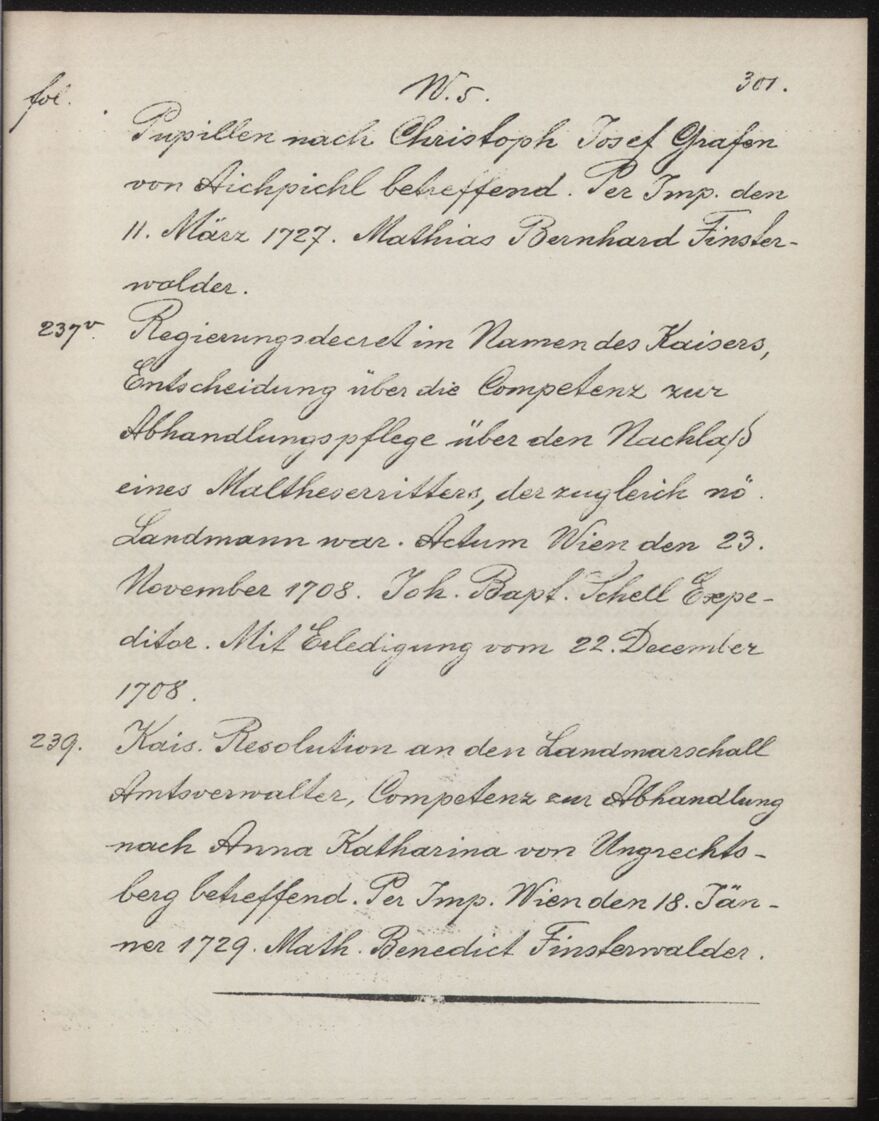 fol. N. 5. 301.
Pupillen nach Christoph Josef Grafen
von Aichpichl betreffend. Per Imp. den
11. März 1727. Mathias Bernhard Finster-
walder.
237v. Regierungsdecret im Namen des Kaisers,
Entscheidung über die Competenz zur
Abhandlungspflege über den Nachlaß
eines Maltheserritters, der zugleich nö.
Landmann war. Actum Wien den 23.
November 1708. Joh. Bapt. Schell Expe-
ditor. Mit Erledigung vom 22. December
1708.
239. Kais. Resolution an den Landmarschall
Amtsverwalter, Competenz zur Abhandlung
nach Anna Katharina von Ungrechts-
berg betreffend. Per Imp. Wien den 18. Jän-
ner 1729. Math. Benedict Finsterwalder.